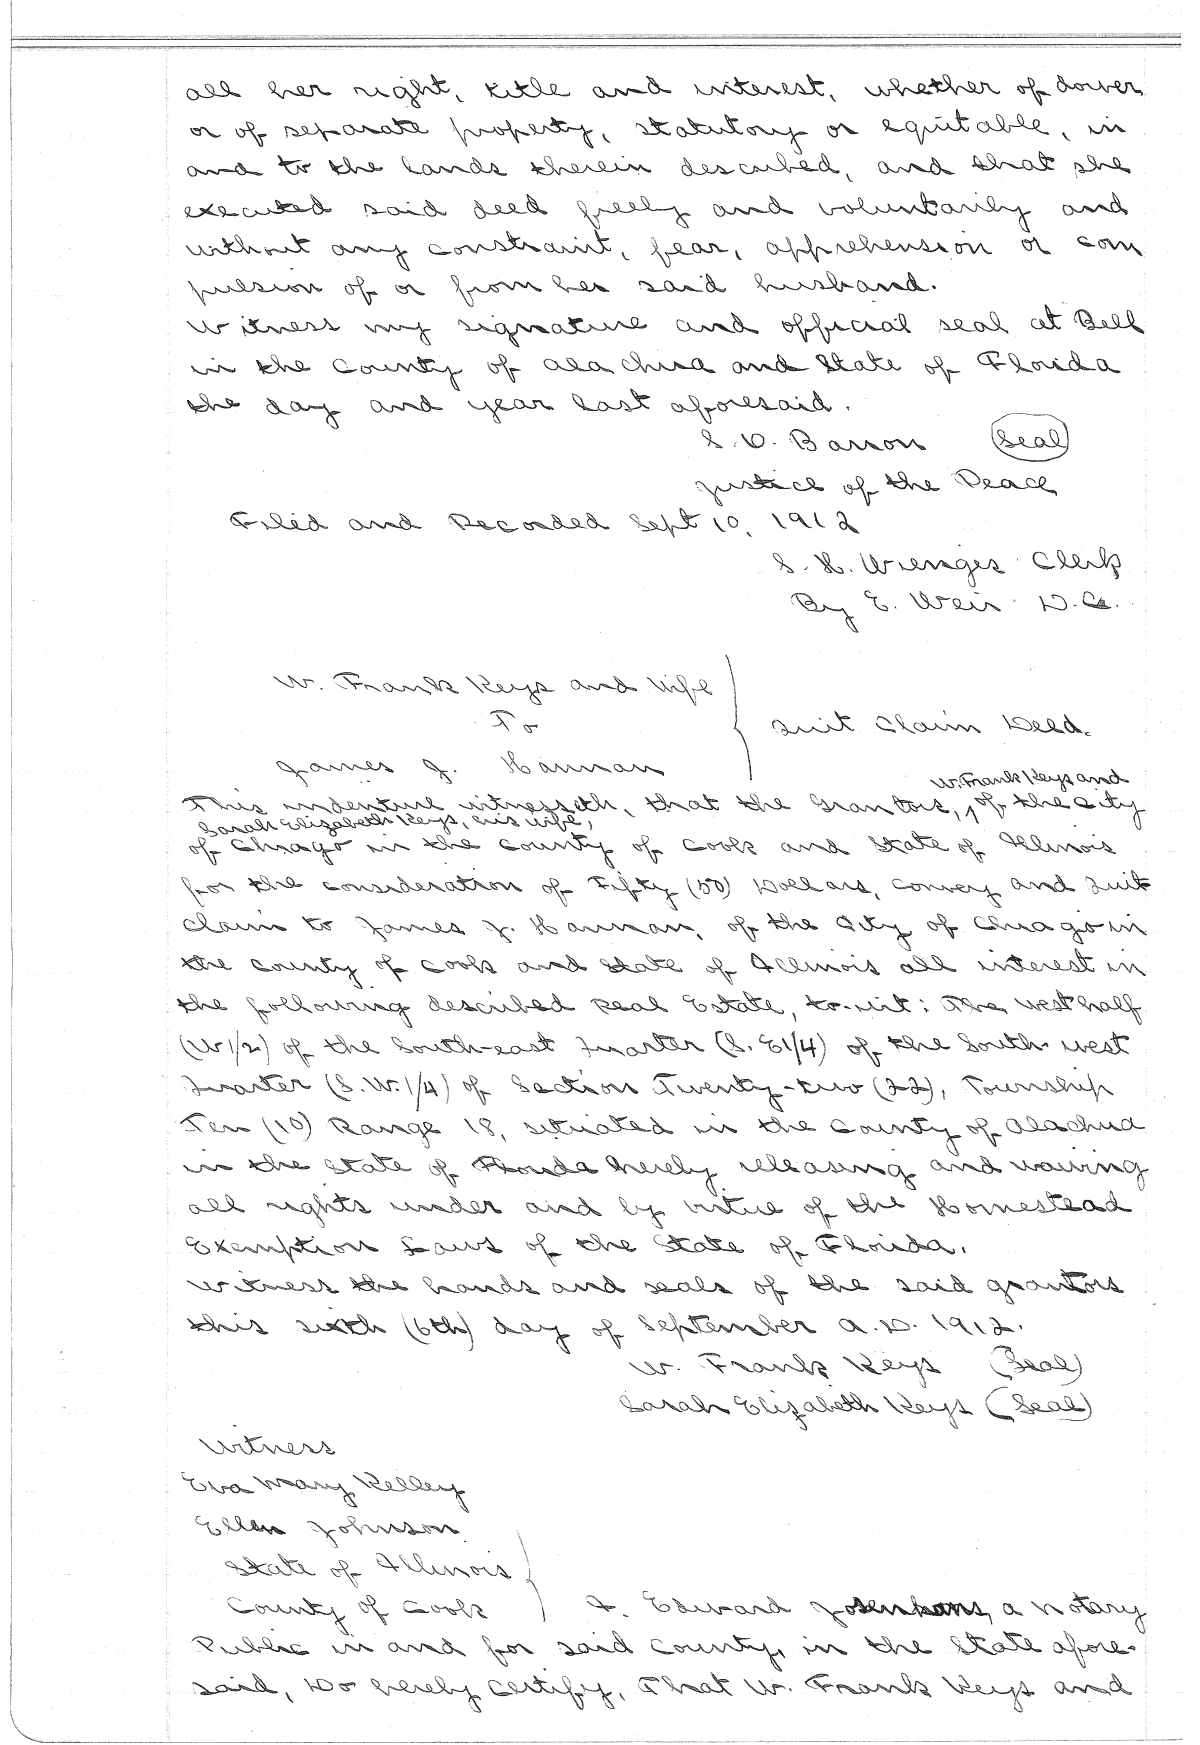 all her right, title and interest, whether of dower
or of separate property, statutory or equitable, in
and to the lands therein described, and that she
executed said deed freely and voluntarily and
without any constraint, fear, apprehension or com
pulsion of or from her said husband.
Witness my signature and official seal at Bell
in the County of Alachua and State of Florida
the day and year last aforesaid.
S. D. Barron (Seal)
Justice of the Peace
Filed and Recorded Sept 10, 1912
S. H. Wienges Clerk
By E. Weir D.C.
W. Frank Keys and Wife
To
Quit Claim Deed.
James J. Hannan
W. Frank Keys and
This indenture witnesseth, that the Grantors, ^ of the City
Sarah Elizabeth Keys, his wife,
of Chicago in the County of Cook and State of Illinois
for the consideration of Fifty (50) Dollars, Convey and Quit
Claim to James J. Hannan, of the City of Chicago in
the County of Cook and State of Illinois all interest in
the following described Real Estate, to-wit: The West half
(W1/2) of the South-east Quarter (S.E1/4) of the South-west
Quarter (S.W.1/4) of Section Twenty-two (22), Township
Ten (10) Range 18, situated in the County of Alachua
in the State of Florida hereby releasing and waiving
all rights under and by virtue of the Homestead
Exemption Laws of the State of Florida.
Witness the hands and seals of the said grantors
this sixth (6th) day of September A.D. 1912.
W. Frank Keys (Seal)
Sarah Elizabeth Keys (Seal)
Witness
Eva Mary Kelley
Ellen Johnson
State of Illinois
County of Cook I, Edward Josenhans, a Notary
Public in and for said County, in the State afore-
said, Do hereby certify, That W. Frank Keys and